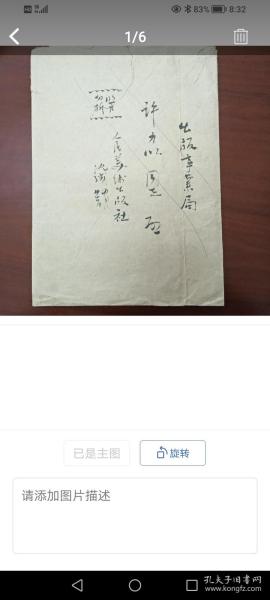 83% 8:32
1/6
出版事业局
许力以同志
人民美术出版社
已是主图
旋转
请添加图片描述
孔夫子旧书网
www.kongfz.com